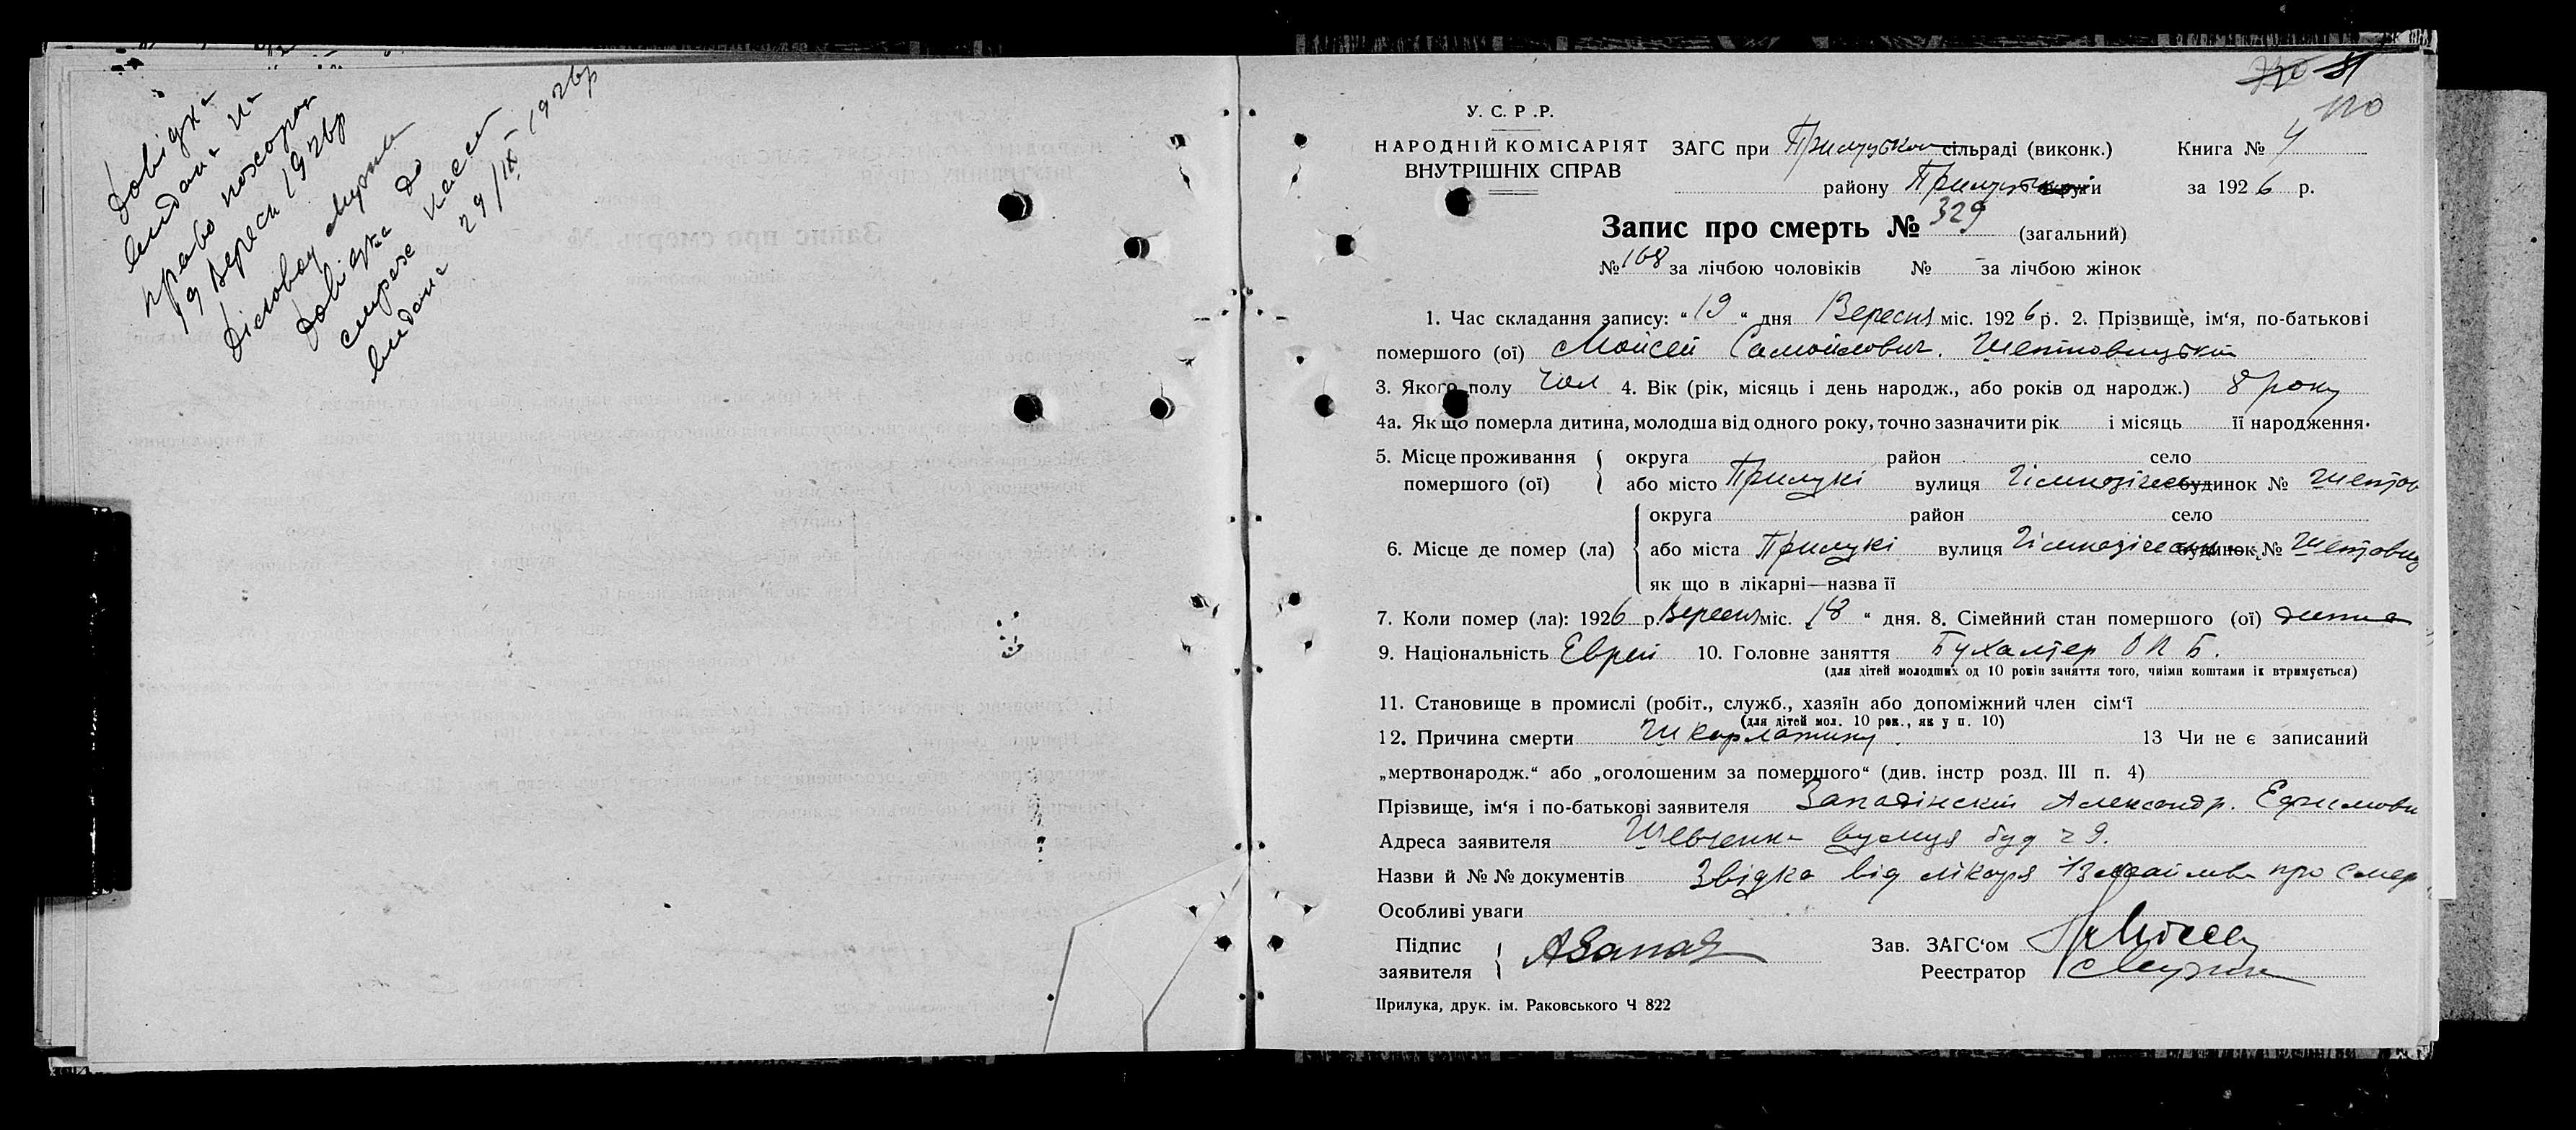 Довідка
видана на
право похорон
19 Вересн 1926р
Діловод
Довідка до
видана 29/IX-1926р
120
У. С. Р .Р.
НАРОДНІЙ КОМІСАРІЯТ
ВНУТРІШНІХ СПРАВ
ЗАГС при Прилуцьком сільраді (виконк.) Книга № 4
району Прилуцьк округи за 1926 р.
Запис про смерть № 329 (загальний)
№ 168 за лічбою чоловіків № - за лічбою жінок
1. Час складання запису: “ 19 “ дня Вересня міс. 1926 р. 2. Прізвище, ім‘я, по-батькові
помершого (ої) Мойсей Самойлович.
3. Якого полу чол 4. Вік (рік, місяць і день народж., або років од народж.) 8 року
4а. Як що померла дитина, молодша від одного року, точно зазначити рік і місяць її народження.
5. Місце проживання помершого (ої) округа район село
або місто Прилукі вулиця Гімназіческ будинок №
6. Місце де помер (ла) округа район село
або міста Прилукі вулиця Гімназіческ будинок №
як що в лікарні—назва її
7. Коли помер (ла): 1926 р. Вересня міс. 18 “ дня. 8. Сімейний стан помершого (ої) дитина
9. Національність Еврей 10. Головне заняття Бухалтер О П Б.
(для дітей молодших од 10 років заняття того, чиїми коштами їх втримується)
11. Становище в промислі (робіт., служб., хазяїн або допоміжний член сім‘ї
(для дітей мол. 10 рок., як у п. 10)
12. Причина смерти Шкарлатину. 13 Чи не є записаний
„мертвонародж.“ або „оголошеним за помершого“ (див. інстр розд. III п. 4)
Прізвище, ім‘я і по-батькові заявителя Западінский Александр. Ефимови
Адреса заявителя Шевченка вулиця буд ч 9.
Назви й № № документів Звідка від лікаря про смер
Особливі уваги
Підпис заявителя АЗапад
Зав. ЗАГС‘ом
Реестратор
Прилука, друк. ім. Раковського Ч 822